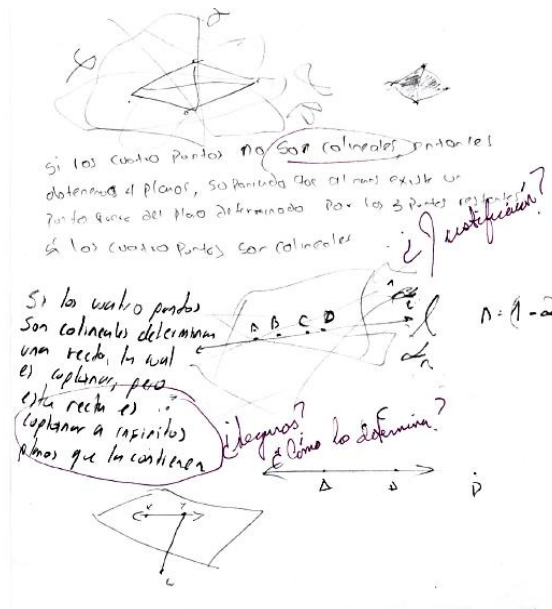 si los cuatro puntos no son colineales, entonces
obtenemos 4 planos, suponiendo que al menos existe un
punto fuera del plano determinado por los 3 puntos restantes
si los cuatro puntos son colineales
¿Justificación?
Si los cuatro puntos
son colineales determinan
una recta, la cual
es coplanar, pero
esta recta es
coplanar a infinitos
planos que la contienen
A B C D
l
¿Seguros?
¿Cómo lo determina?
A
D